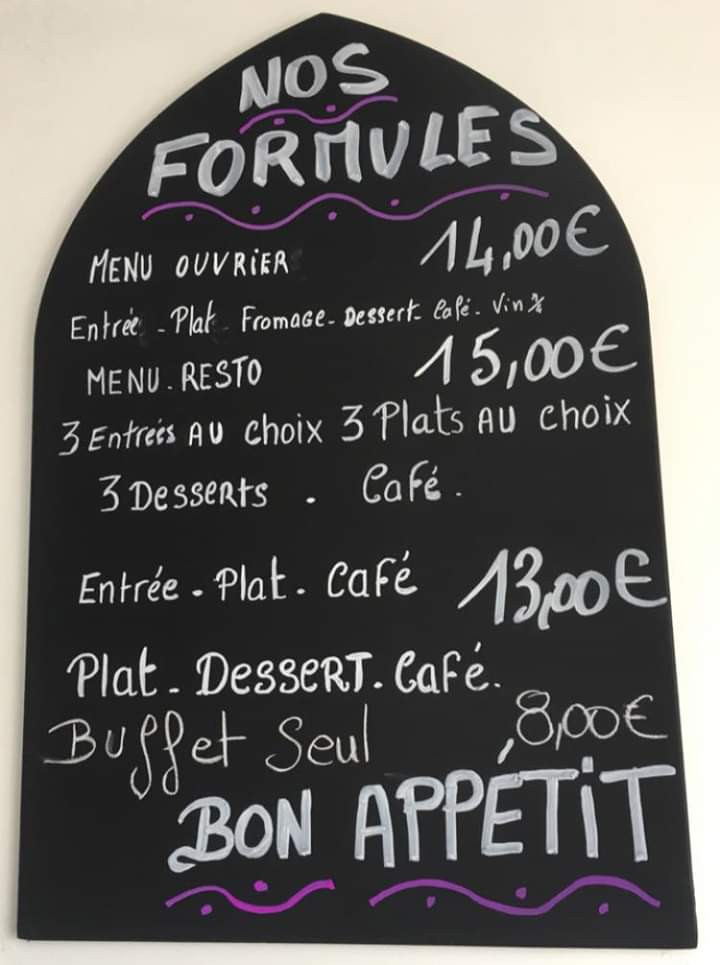 NOS
FORMULES
MENU OUVRIER 14,00€
Entrée - Plat - Fromage - Dessert - Café - Vin
MENU . RESTO 15,00€
3 Entrées AU choix 3 Plats AU choix
3 Desserts . Café .
Entrée . Plat . Café 13,00€
Plat - Dessert . Café .
Buffet Seul 8,00€
BON APPÉTiT